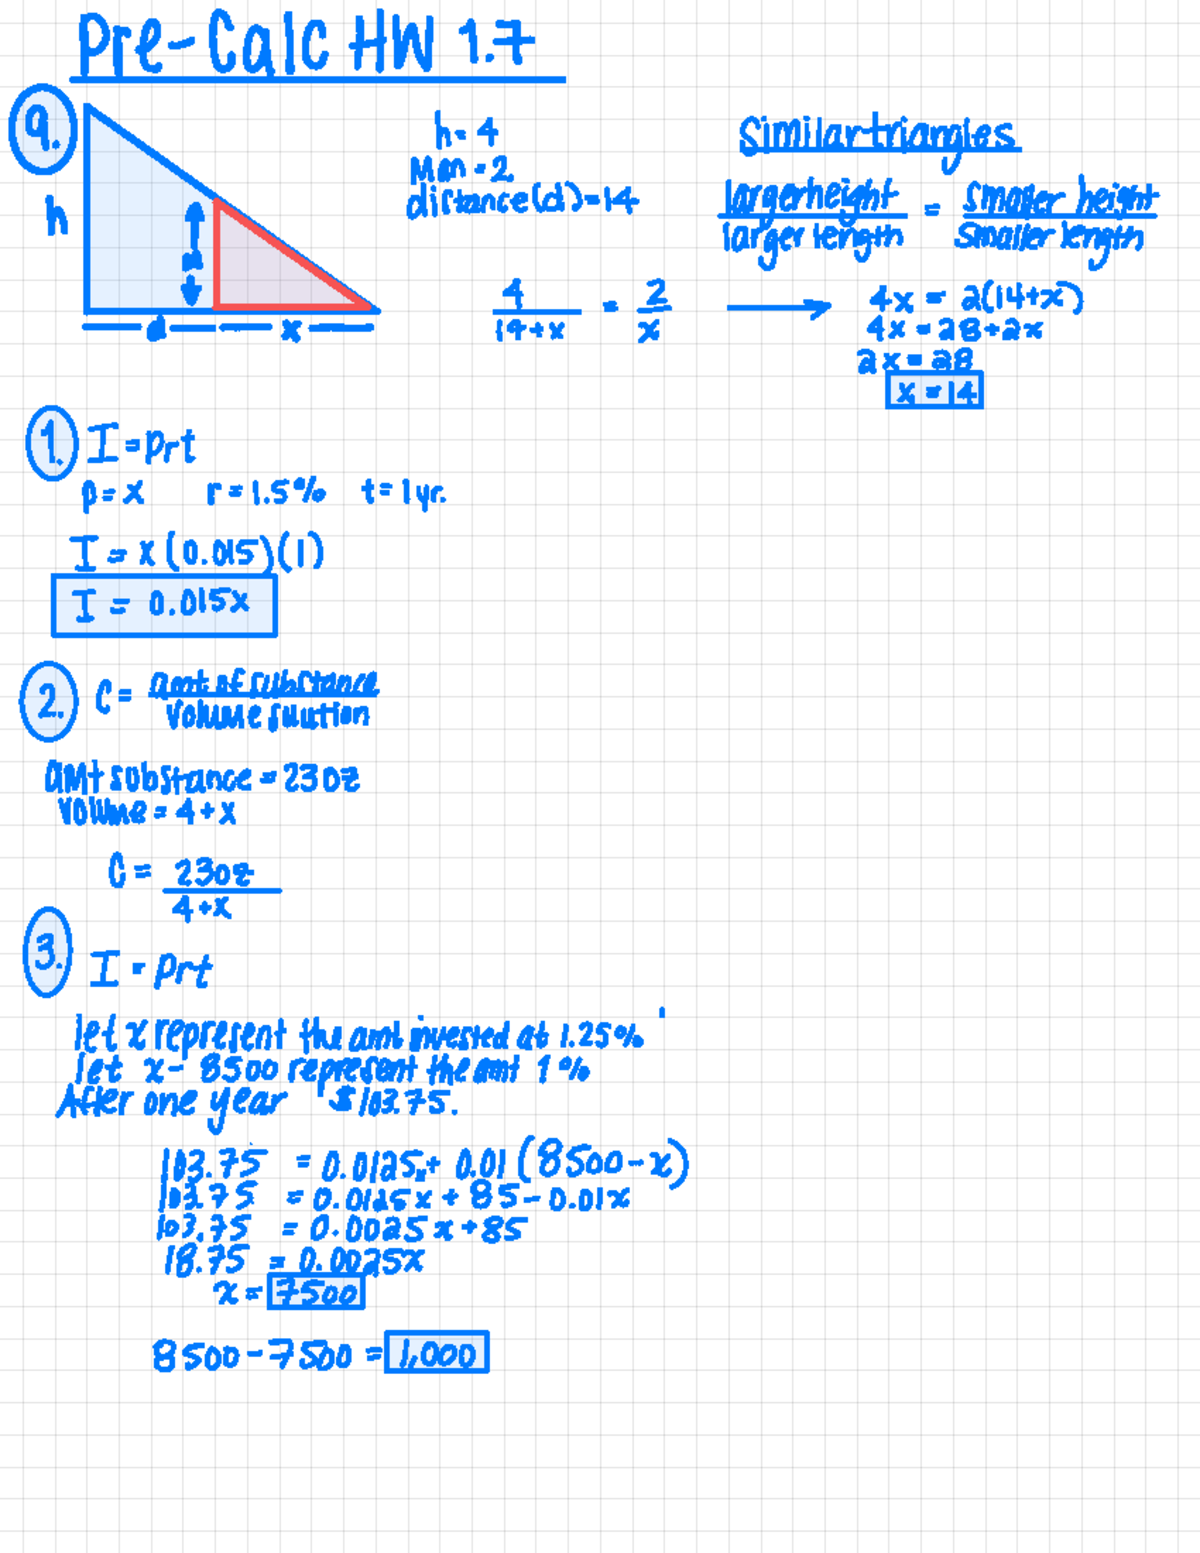 Pre-Calc HW 1.7
9.
h
2
d x
h = 4
Man = 2
distance(d) = 14
4/(14+x) = 2/x
Similar triangles
larger height/larger length = smaller height/smaller length
4x = 2(14+x)
4x = 28+2x
2x = 28
x = 14
1. I = prt
p = x r = 1.5% t = 1yr.
I = x(0.015)(1)
I = 0.015x
2. C = amt of substance/volume solution
amt substance = 23oz
volume = 4+x
C = 23oz/4+x
3. I = prt
let x represent the amt invested at 1.25%
let x - 8500 represent the amt 1%
After one year $103.75.
103.75 = 0.0125x + 0.01(8500-x)
103.75 = 0.0125x + 85 - 0.01x
103.75 = 0.0025x + 85
18.75 = 0.0025x
x = 7500
8500 - 7500 = 1,000